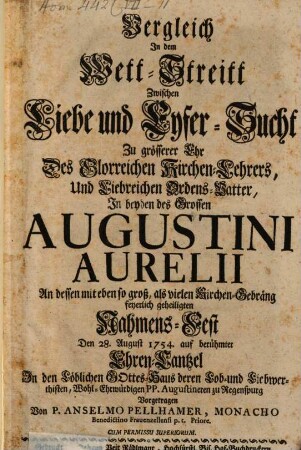 Hom. 442
Vergleich
In dem
Wett-Streitt
Zwischen
Liebe und Eyfer-Sucht
Zu grösserer Ehr
Des Glorreichen Kirchen-Lehrers,
Und Liebreichen Ordens-Vatter,
In beyden des Grossen
AUGUSTINI
AURELII
An dessen mit eben so groß, als vielen Kirchen-Gebräng
feyerlich geheiligten
Nahmens-Fest
Den 28. August 1754. auf berühmter
Ehren-Cantzel
In den Löblichen GOttes-Hauß deren Lob- und Liebwer-
thisten, Wohl-Ehrwürdigen PP. Augustineren zu Regenspurg
Vorgetragen
Von P. ANSELMO PELLHAMER, MONACHO
Benedictino Frauenzellensi p. t. Priore.
CUM PERMISSU SUPERIORUM.
Hochfürstl. Bis. Hof-Buchdruckern